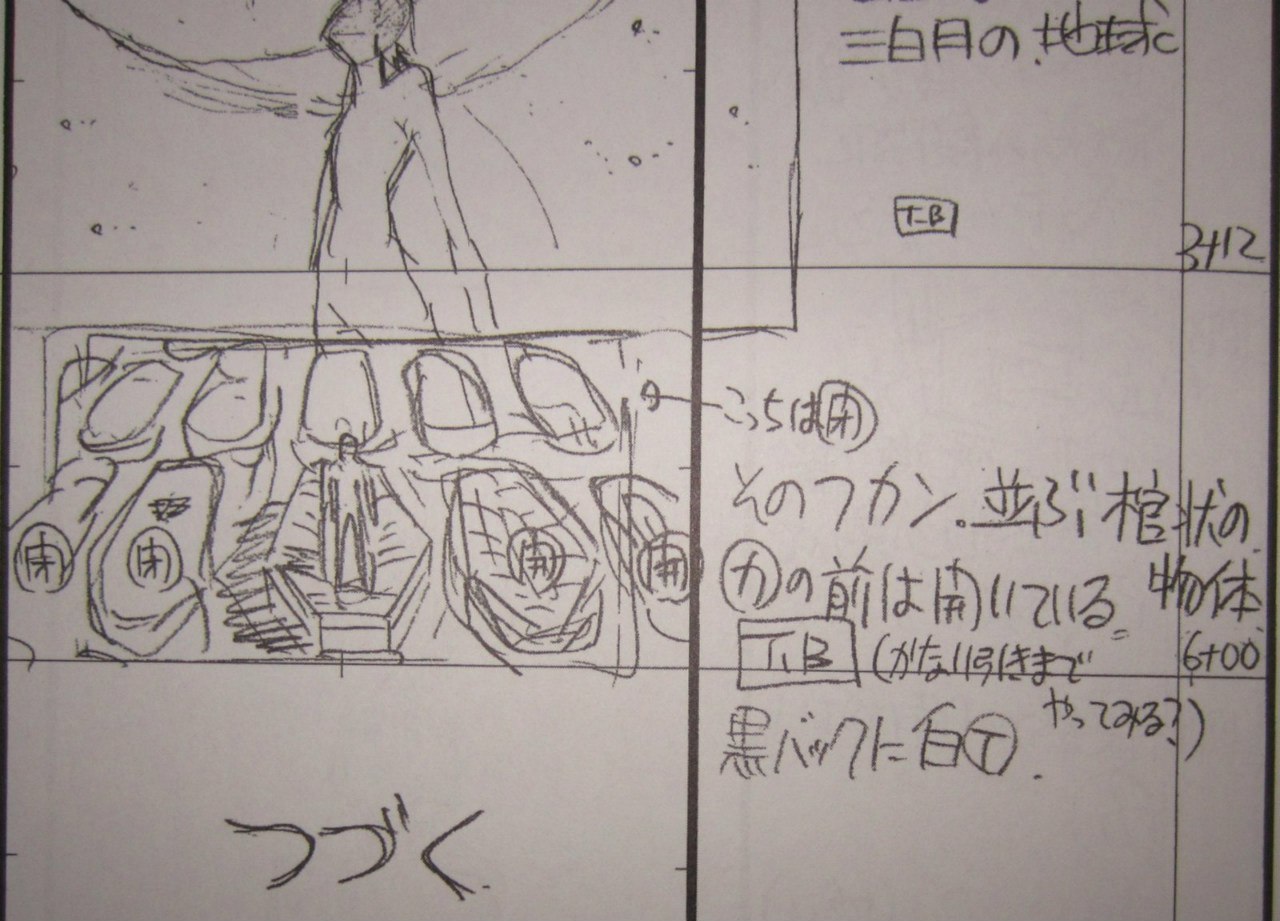 三日月の地球
T.B
3+12
こっちは閉
そのフカン。並ぶ棺状の
物体
カの前は開いている
T.B
(かなり引きまで
やってみる?)
6+00
黒バックに白T.
閉
閉
開
開
つづく